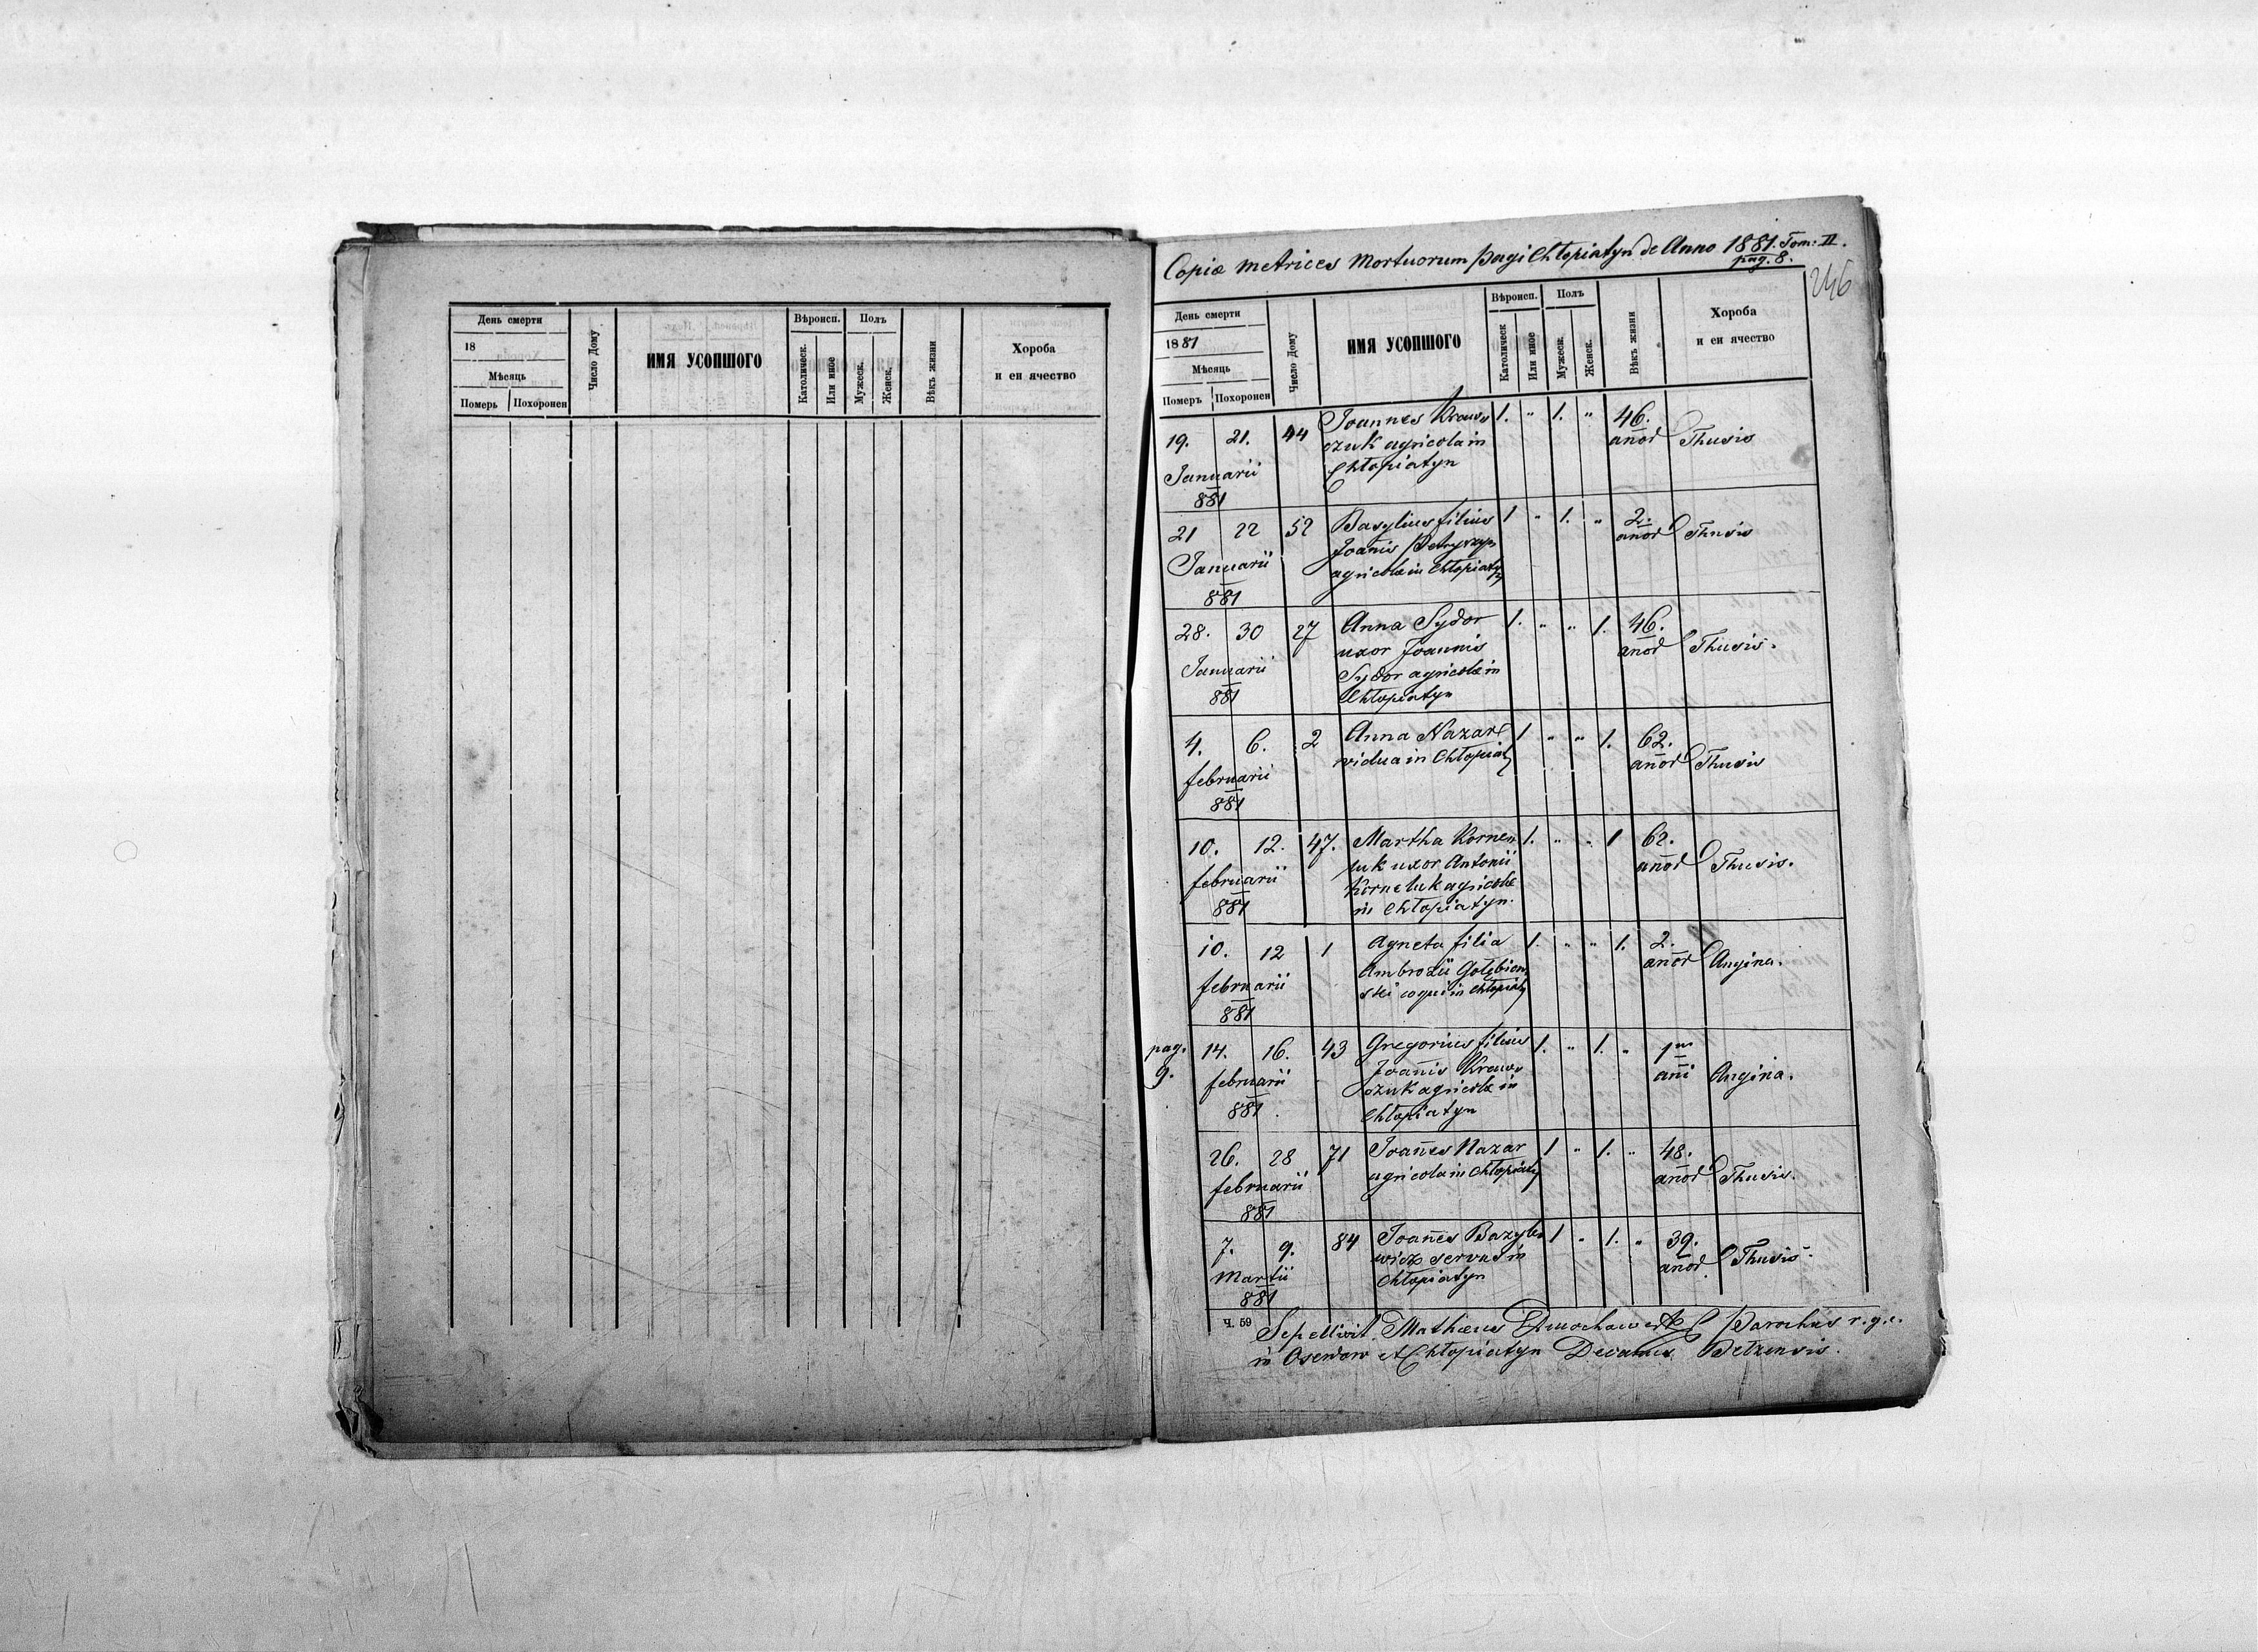 День смерти
18
Мѣсяць
Померъ
Похоронен
Число Дому
ИМЯ УСОПШОГО
Вѣроисп.
Католическ.
Или иное
Полъ
Мужеск.
Женск.
Вѣкъ жизни
Хороба
и еи ячество
Copiæ metrices Mortuorum pagi Chłopiatyn de Anno 1881. Tom: II.
pag. 8.
246
День смерти
1881
Мѣсяць
Померъ
Похоронен
Число Дому
ИМЯ УСОПШОГО
Вѣроисп.
Католическ
Или иное
Полъ
Мужеск.
Женск.
Вѣкъ жизни
Хороба
и еи ячество
19. 21. 44 Joannes Kraws 1. " 1. " 46.
czuk agricola in anor Thusis
Januarii Chłopiatyn
881
21 22 52 Basylius filius 1 " 1. " 2.
Joanis anor Thusis
Januarii agricolæ in Chłopiatyn
881
28. 30 27 Anna Sydor 1. " " 1. 46.
uxor Joannis anor Thusis.
Januarii Sydor agricolæ in
881 Chłopiatyn
4. 6. 2 Anna Nazar 1 " " 1. 62.
vidua in Chłopiat anor Thusis
februarii
881
10. 12. 47. Martha Korne 1. " " 1 62.
luk uxor Antonii anor Thusis.
februarii Korneluk agricolæ
881 in Chłopiatyn.
10. 12 1 Agneta filia 1. " " 1. 2.
Ambrozii Gołębiow anor Angina.
februarii ski coqui in Chłopiaty
881
pag. 9.
14. 16. 43 Gregorius filius 1. " 1. " 1
februarii Joañis Kraws añi Angina.
czuk agricolæ in
881. Chłopiatyn
26. 28 71 Joañes Nazar 1 " 1. " 48.
februarii agricola in Chłopiaty anor Thusis.
881
7. 9. 84 Joañes Bazyle 1 " 1. " 39.
wicz servus in anor Thusis.
Martii Chłopiatyn
881
Ч. 59
Sepelivit Mathæus Parochus r. g. c.
in Oserdow et Chłopiatyn Decanus Bełzensis.